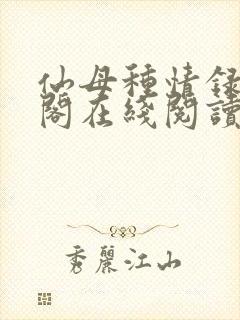 仙母種情録
閣在綫閱讀
秀麗江山